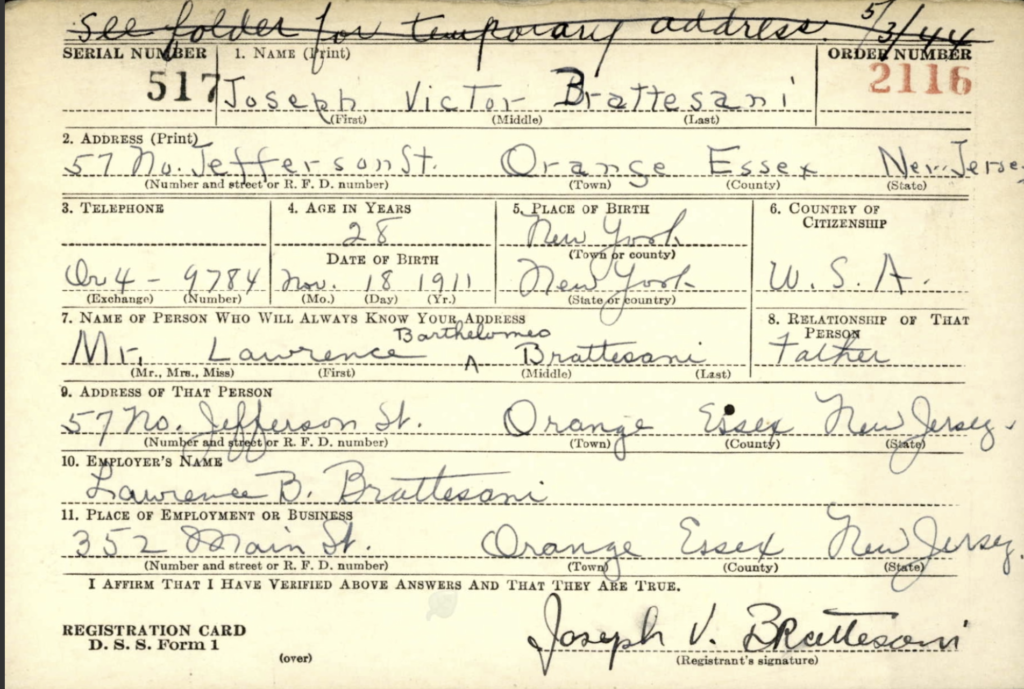 See folder for temporary address. 5/3/44
SERIAL NUMBER 1. NAME (Print) ORDER NUMBER
517 Joseph Victor Brattesani 2116
(First) (Middle) (Last)
2. ADDRESS (Print)
57 No. Jefferson St. Orange Essex New Jersey
(Number and street or R. F. D. number) (Town) (County) (State)
3. TELEPHONE 4. AGE IN YEARS 5. PLACE OF BIRTH 6. COUNTRY OF CITIZENSHIP
28 New York
DATE OF BIRTH (Town or county)
Or 4 - 9784 Nov. 18 1911 New York U. S. A.
(Exchange) (Number) (Mo.) (Day) (Yr.) (State or country)
7. NAME OF PERSON WHO WILL ALWAYS KNOW YOUR ADDRESS 8. RELATIONSHIP OF THAT PERSON
Barthelomeo
Mr. Lawrence ^ Brattesani Father
(Mr., Mrs., Miss) (First) (Middle) (Last)
9. ADDRESS OF THAT PERSON
57 No. Jefferson St. Orange Essex New Jersey.
(Number and street or R. F. D. number) (Town) (County) (State)
10. EMPLOYER'S NAME
Lawrence B. Brattesani
11. PLACE OF EMPLOYMENT OR BUSINESS
352 Main St. Orange Essex New Jersey.
(Number and street or R. F. D. number) (Town) (County) (State)
I AFFIRM THAT I HAVE VERIFIED ABOVE ANSWERS AND THAT THEY ARE TRUE.
REGISTRATION CARD
D. S. S. Form 1 Joseph V. Brattesani
(over) (Registrant's signature)